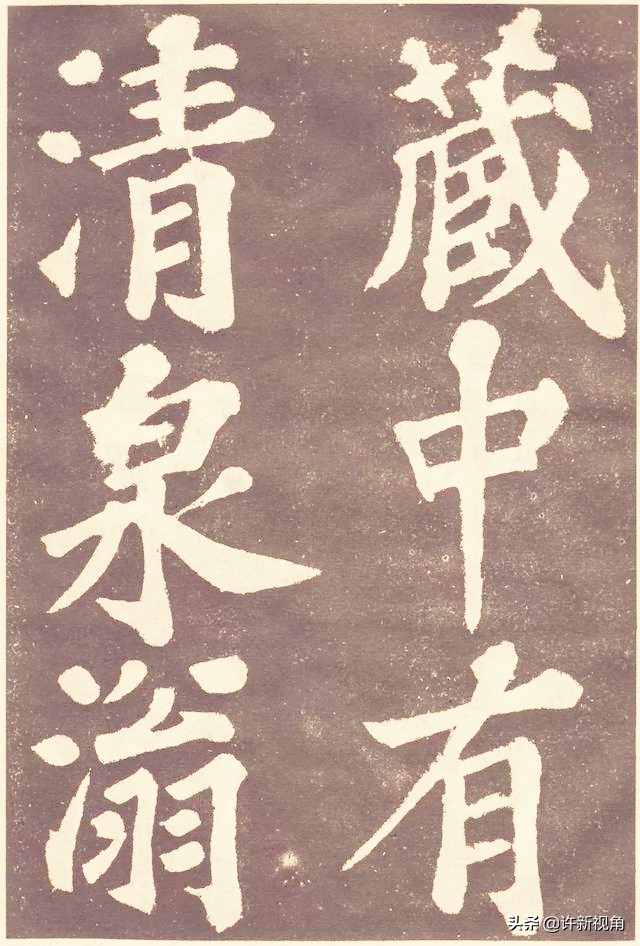 藏中有
清泉滃
头条 @许新视角